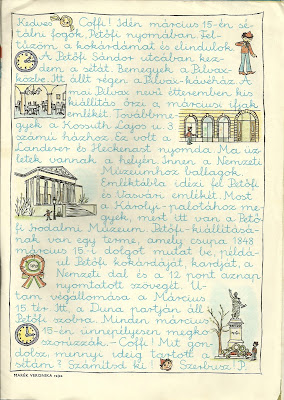 Kedves Csöffi! Idén március 15-én sé-
tálni fogok Petőfi nyomában. Fel-
tűzöm a kokárdámat és elindulok.
A Petőfi Sándor utcában kez-
dem a sétát. Bemegyek a Pilvax-
közbe. Itt állt régen a Pilvax-kávéház. A
mai Pilvax nevű étteremben kis
kiállítás őrzi a márciusi ifjak
emlékét. Továbbme-
gyek a Kossuth Lajos u. 3
számú házhoz. Ez volt a
Landerer és Heckenast nyomda. Ma üz-
letek vannak a helyén. Innen a Nemzeti
Múzeumhoz ballagok.
Emléktábla idézi fel Petőfi
és Vasvári emlékét. Most
a Károlyi-palotához me-
gyek, mert itt van a Pető-
fi Irodalmi Múzeum. Petőfi-kiállításá-
nak van egy terme, amely csupa 1848
március 15-i dolgot mutat be, pédá-
ul Petőfi kokárdáját, kardját, a
Nemzeti dal és a 12 pont aznap
nyomtatott szövegét. U-
tam végállomása a Március
15. tér. Itt, a Duna partján áll
Petőfi szobra. Minden március
15-én ünnepélyesen megko-
szorúzzák. – Csöffi! Mit gon-
dolsz, mennyi ideig tartott a
sétám? Számítsd ki! Szerbusz! P.
MARÉK VERONIKA